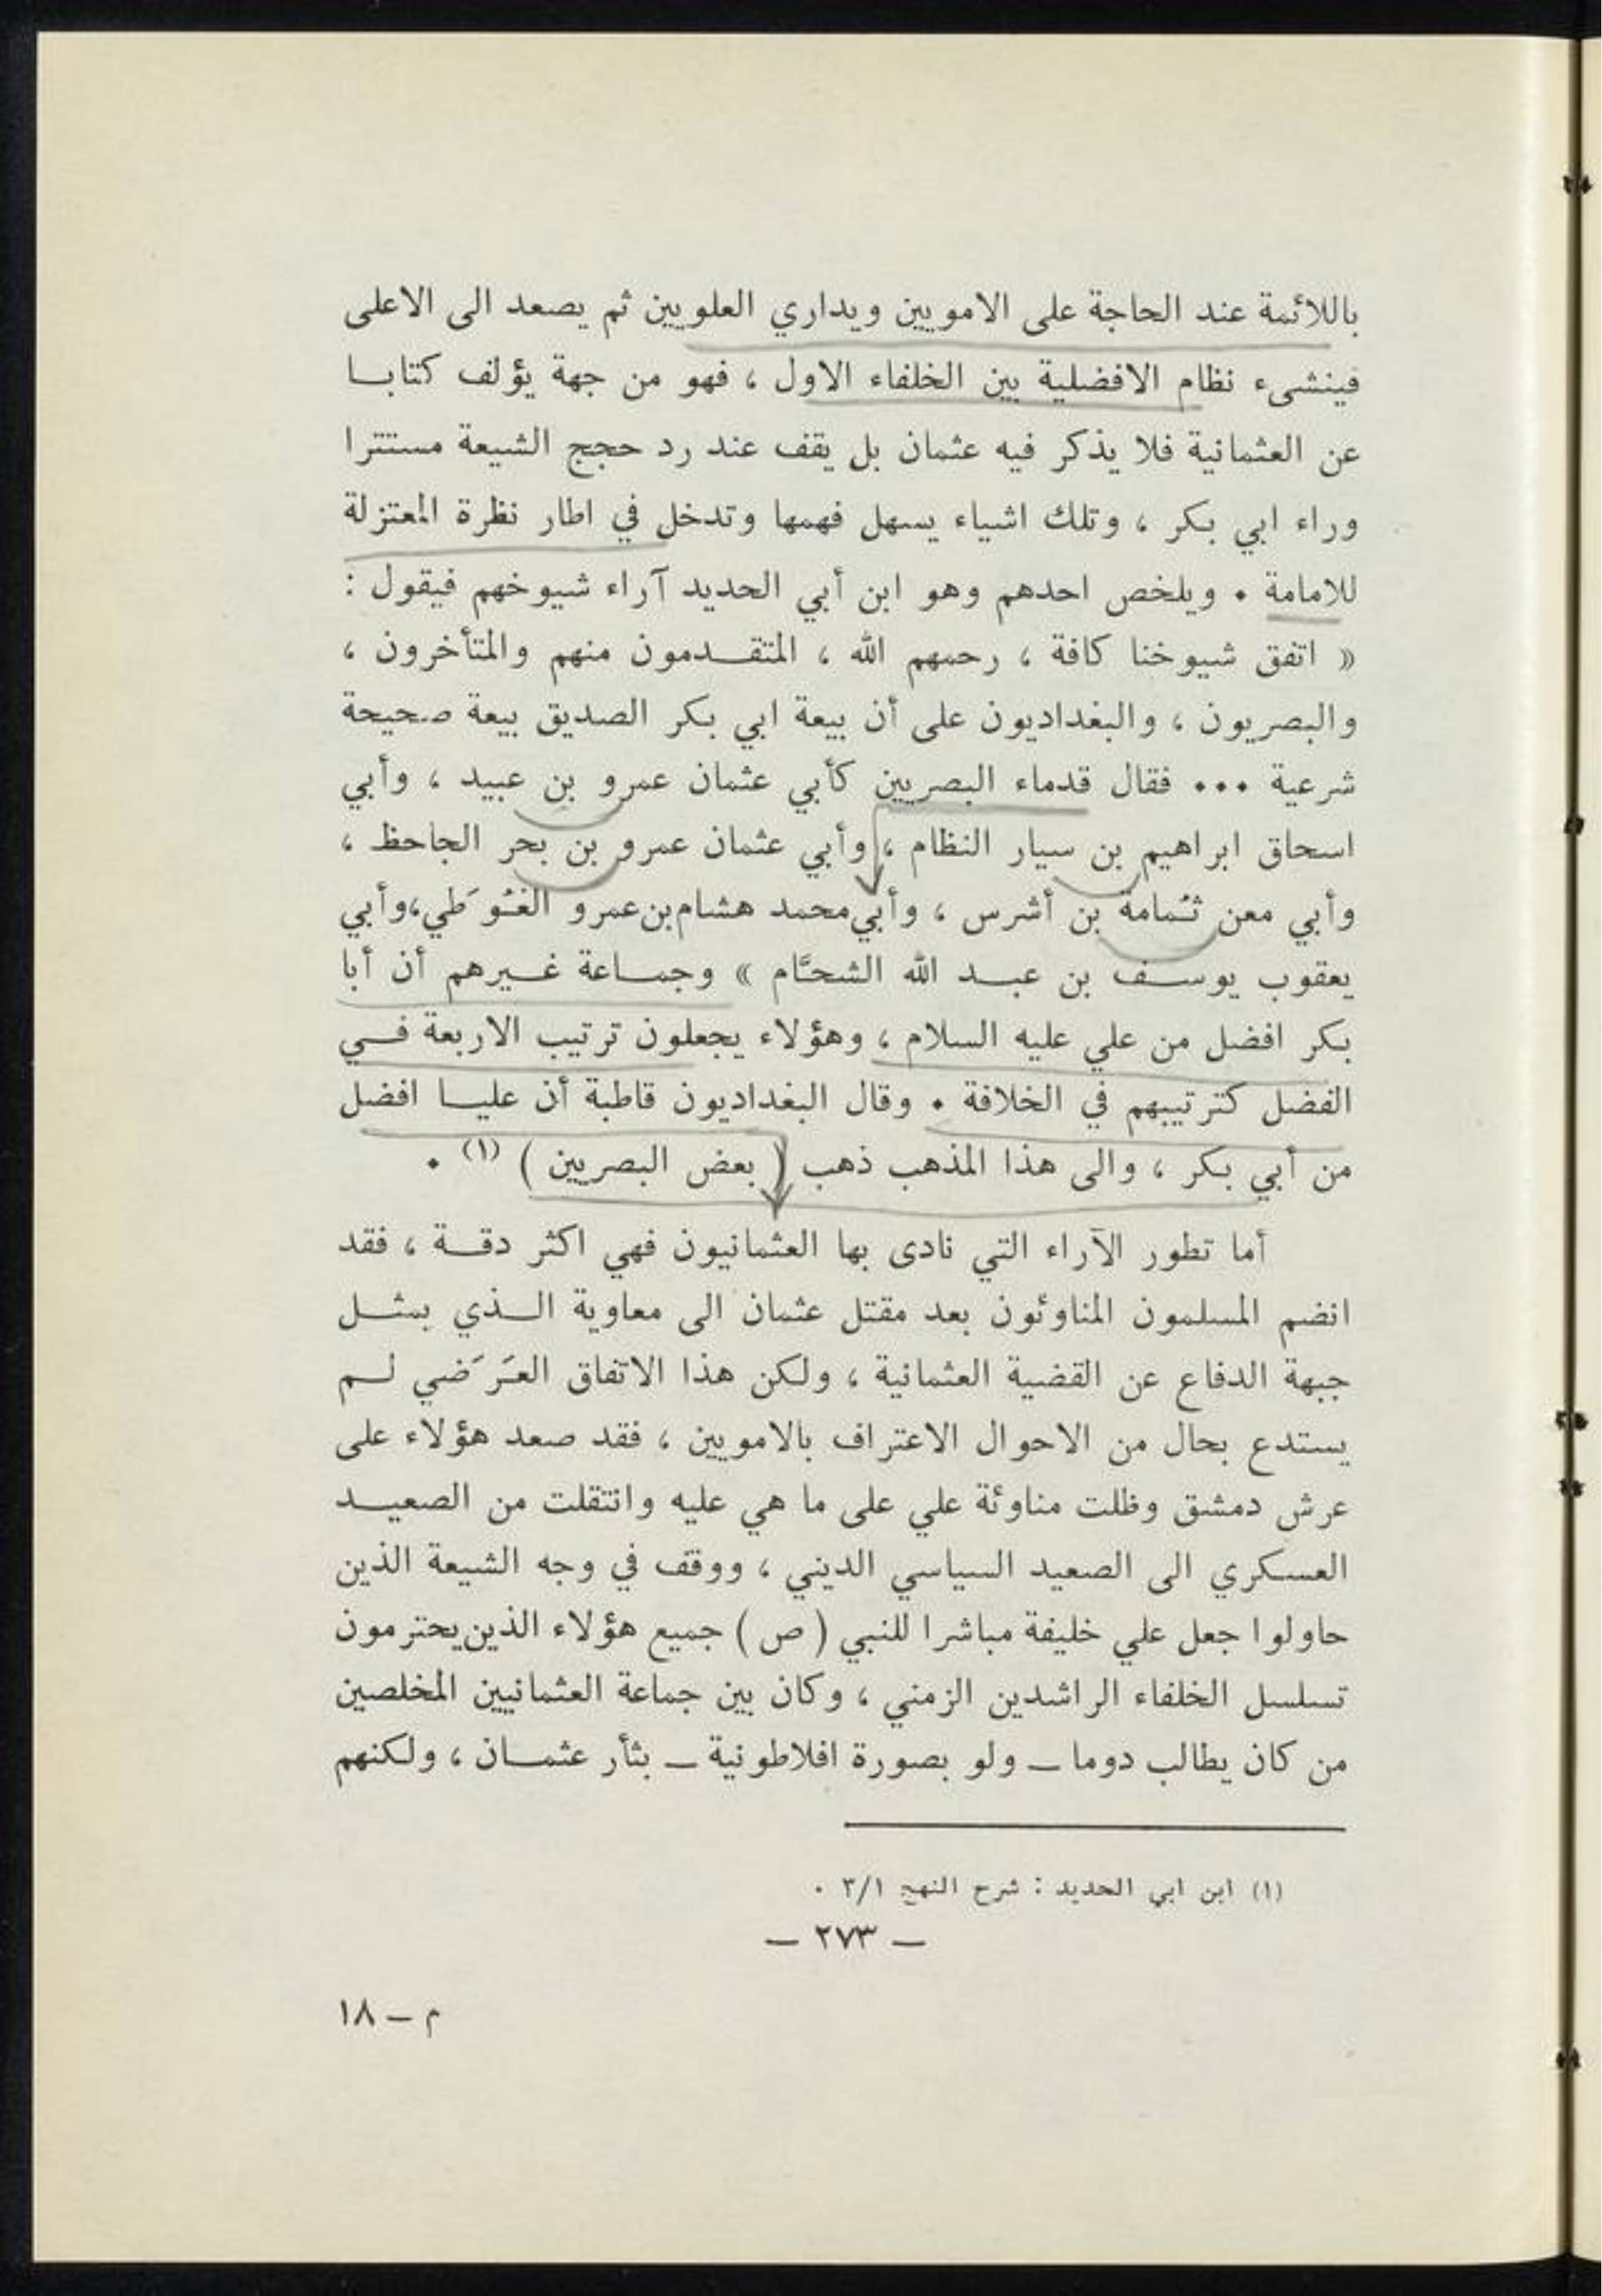 باللائمة عند الحاجة على الامويين ويداري العلويين ثم يصعد الى الاعلى
فينشىء نظام الافضلية بين الخلفاء الاول ، فهو من جهة يؤلف كتابا
عن العثمانية فلا يذكر فيه عثمان بل يقف عند رد حجج الشيعة مستترا
وراء ابي بكر ، وتلك اشياء يسهل فهمها وتدخل في اطار نظرة المعتزلة
للامامة . ويلخص احدهم وهو ابن أبي الحديد آراء شيوخهم فيقول :
« اتفق شيوخنا كافة ، رحمهم الله ، المتقدمون منهم والمتأخرون ،
والبصريون ، والبغداديون على أن بيعة ابي بكر الصديق بيعة صحيحة
شرعية ... فقال قدماء البصريين كأبي عثمان عمرو بن عبيد ، وأبي
اسحاق ابراهيم بن سيار النظام ، وأبي عثمان عمرو بن بحر الجاحظ ،
وأبي معن ثُمامة بن أشرس ، وأبي محمد هشام بن عمرو الغُوَطي ، وأبي
يعقوب يوسف بن عبد الله الشحَّام » وجماعة غيرهم أن أبا
بكر افضل من علي عليه السلام ، وهؤلاء يجعلون ترتيب الاربعة في
الفضل كترتيبهم في الخلافة . وقال البغداديون قاطبة أن عليا افضل
من أبي بكر ، والى هذا المذهب ذهب ( بعض البصريين ) (١) .
أما تطور الآراء التي نادى بها العثمانيون فهي اكثر دقة ، فقد
انضم المسلمون المناوئون بعد مقتل عثمان الى معاوية الذي يمثل
جبهة الدفاع عن القضية العثمانية ، ولكن هذا الاتفاق العَرَضي لم
يستدع بحال من الاحوال الاعتراف بالامويين ، فقد صعد هؤلاء على
عرش دمشق وظلت مناوئة علي على ما هي عليه وانتقلت من الصعيد
العسكري الى الصعيد السياسي الديني ، ووقف في وجه الشيعة الذين
حاولوا جعل علي خليفة مباشرا للنبي ( ص ) جميع هؤلاء الذين يحترمون
تسلسل الخلفاء الراشدين الزمني ، وكان بين جماعة العثمانيين المخلصين
من كان يطالب دوما – ولو بصورة افلاطونية – بثأر عثمان ، ولكنهم
(١) ابن ابي الحديد : شرح النهج ٣/١ .
– ٢٧٣ –
م – ١٨